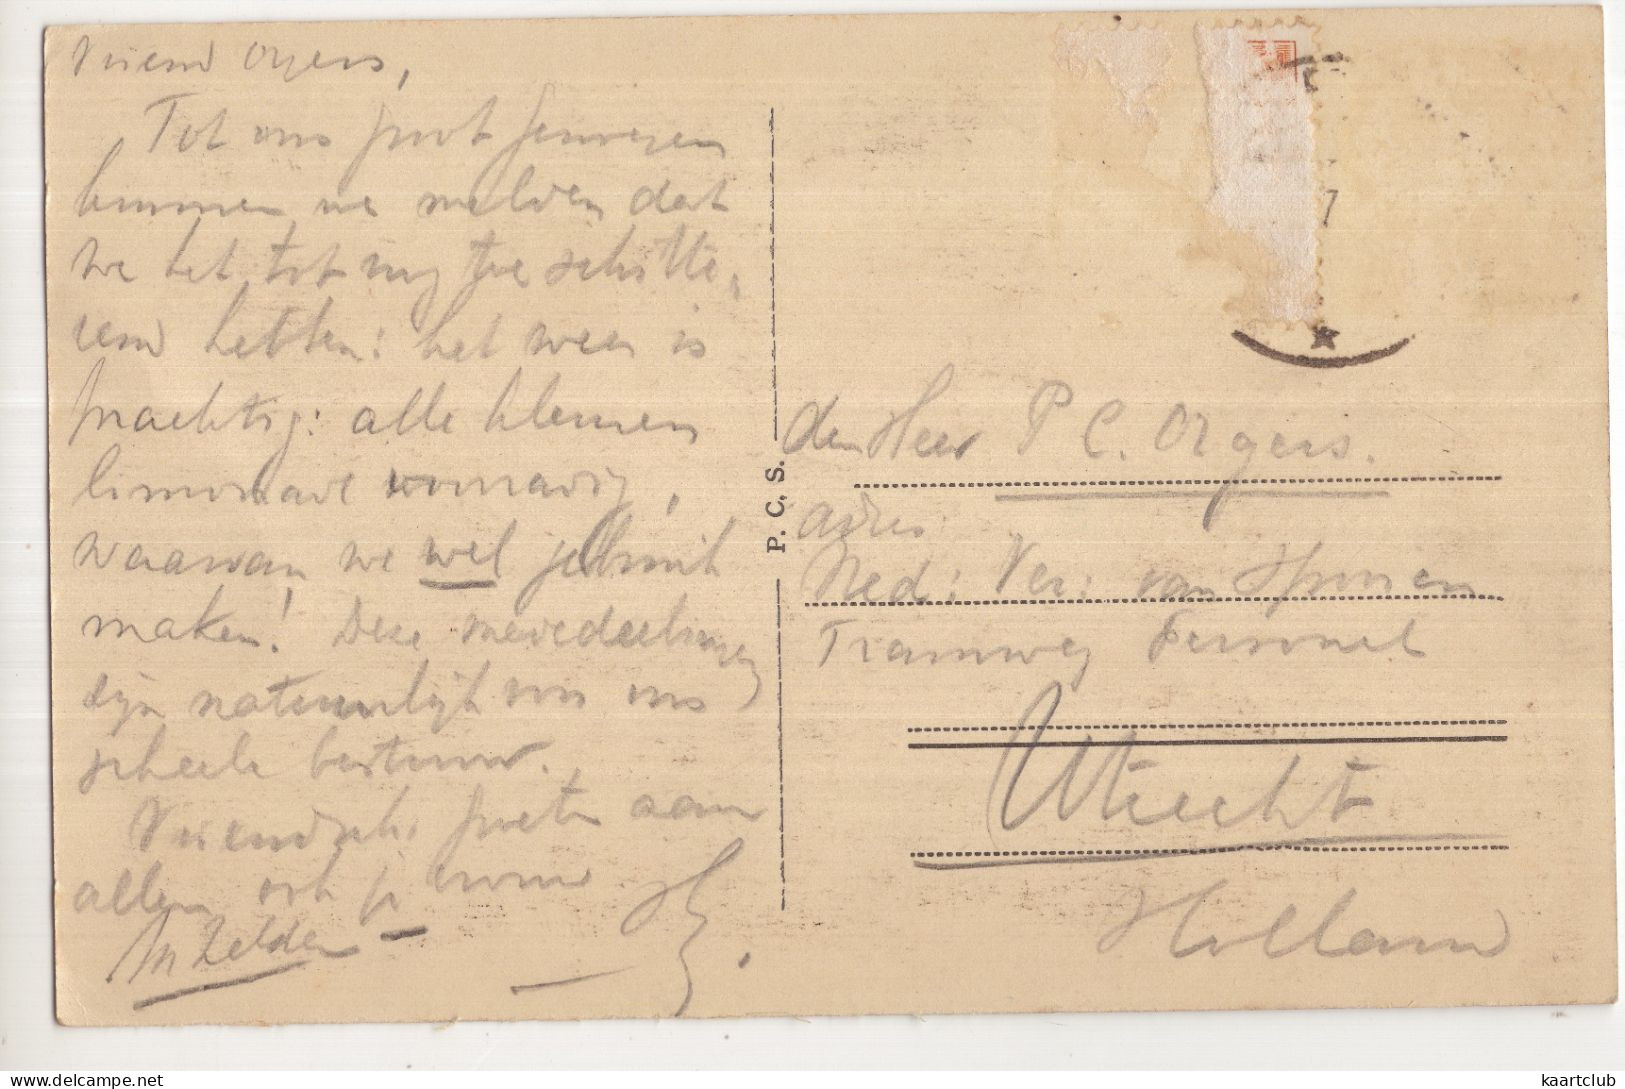 Vriend Orgers,
Tot ons groot genoegen
kunnen we melden dat
we het tot nog toe schitte-
rend hebben: het weer is
prachtig: alle kleuren
limonade voorradig,
waarvan we wel gebruik
maken! Deze mededeelingen
zijn natuurlijk voor ons
geheele bestuur.
Vriendsch. groeten aan
allen, ook je vrouw
P. C. S.
den Heer P C. Orgers.
adres
Ned: Ver: van Spoor en
Tramweg Personeel
Utrecht
Holland
7
delcampe.net
kaartclub